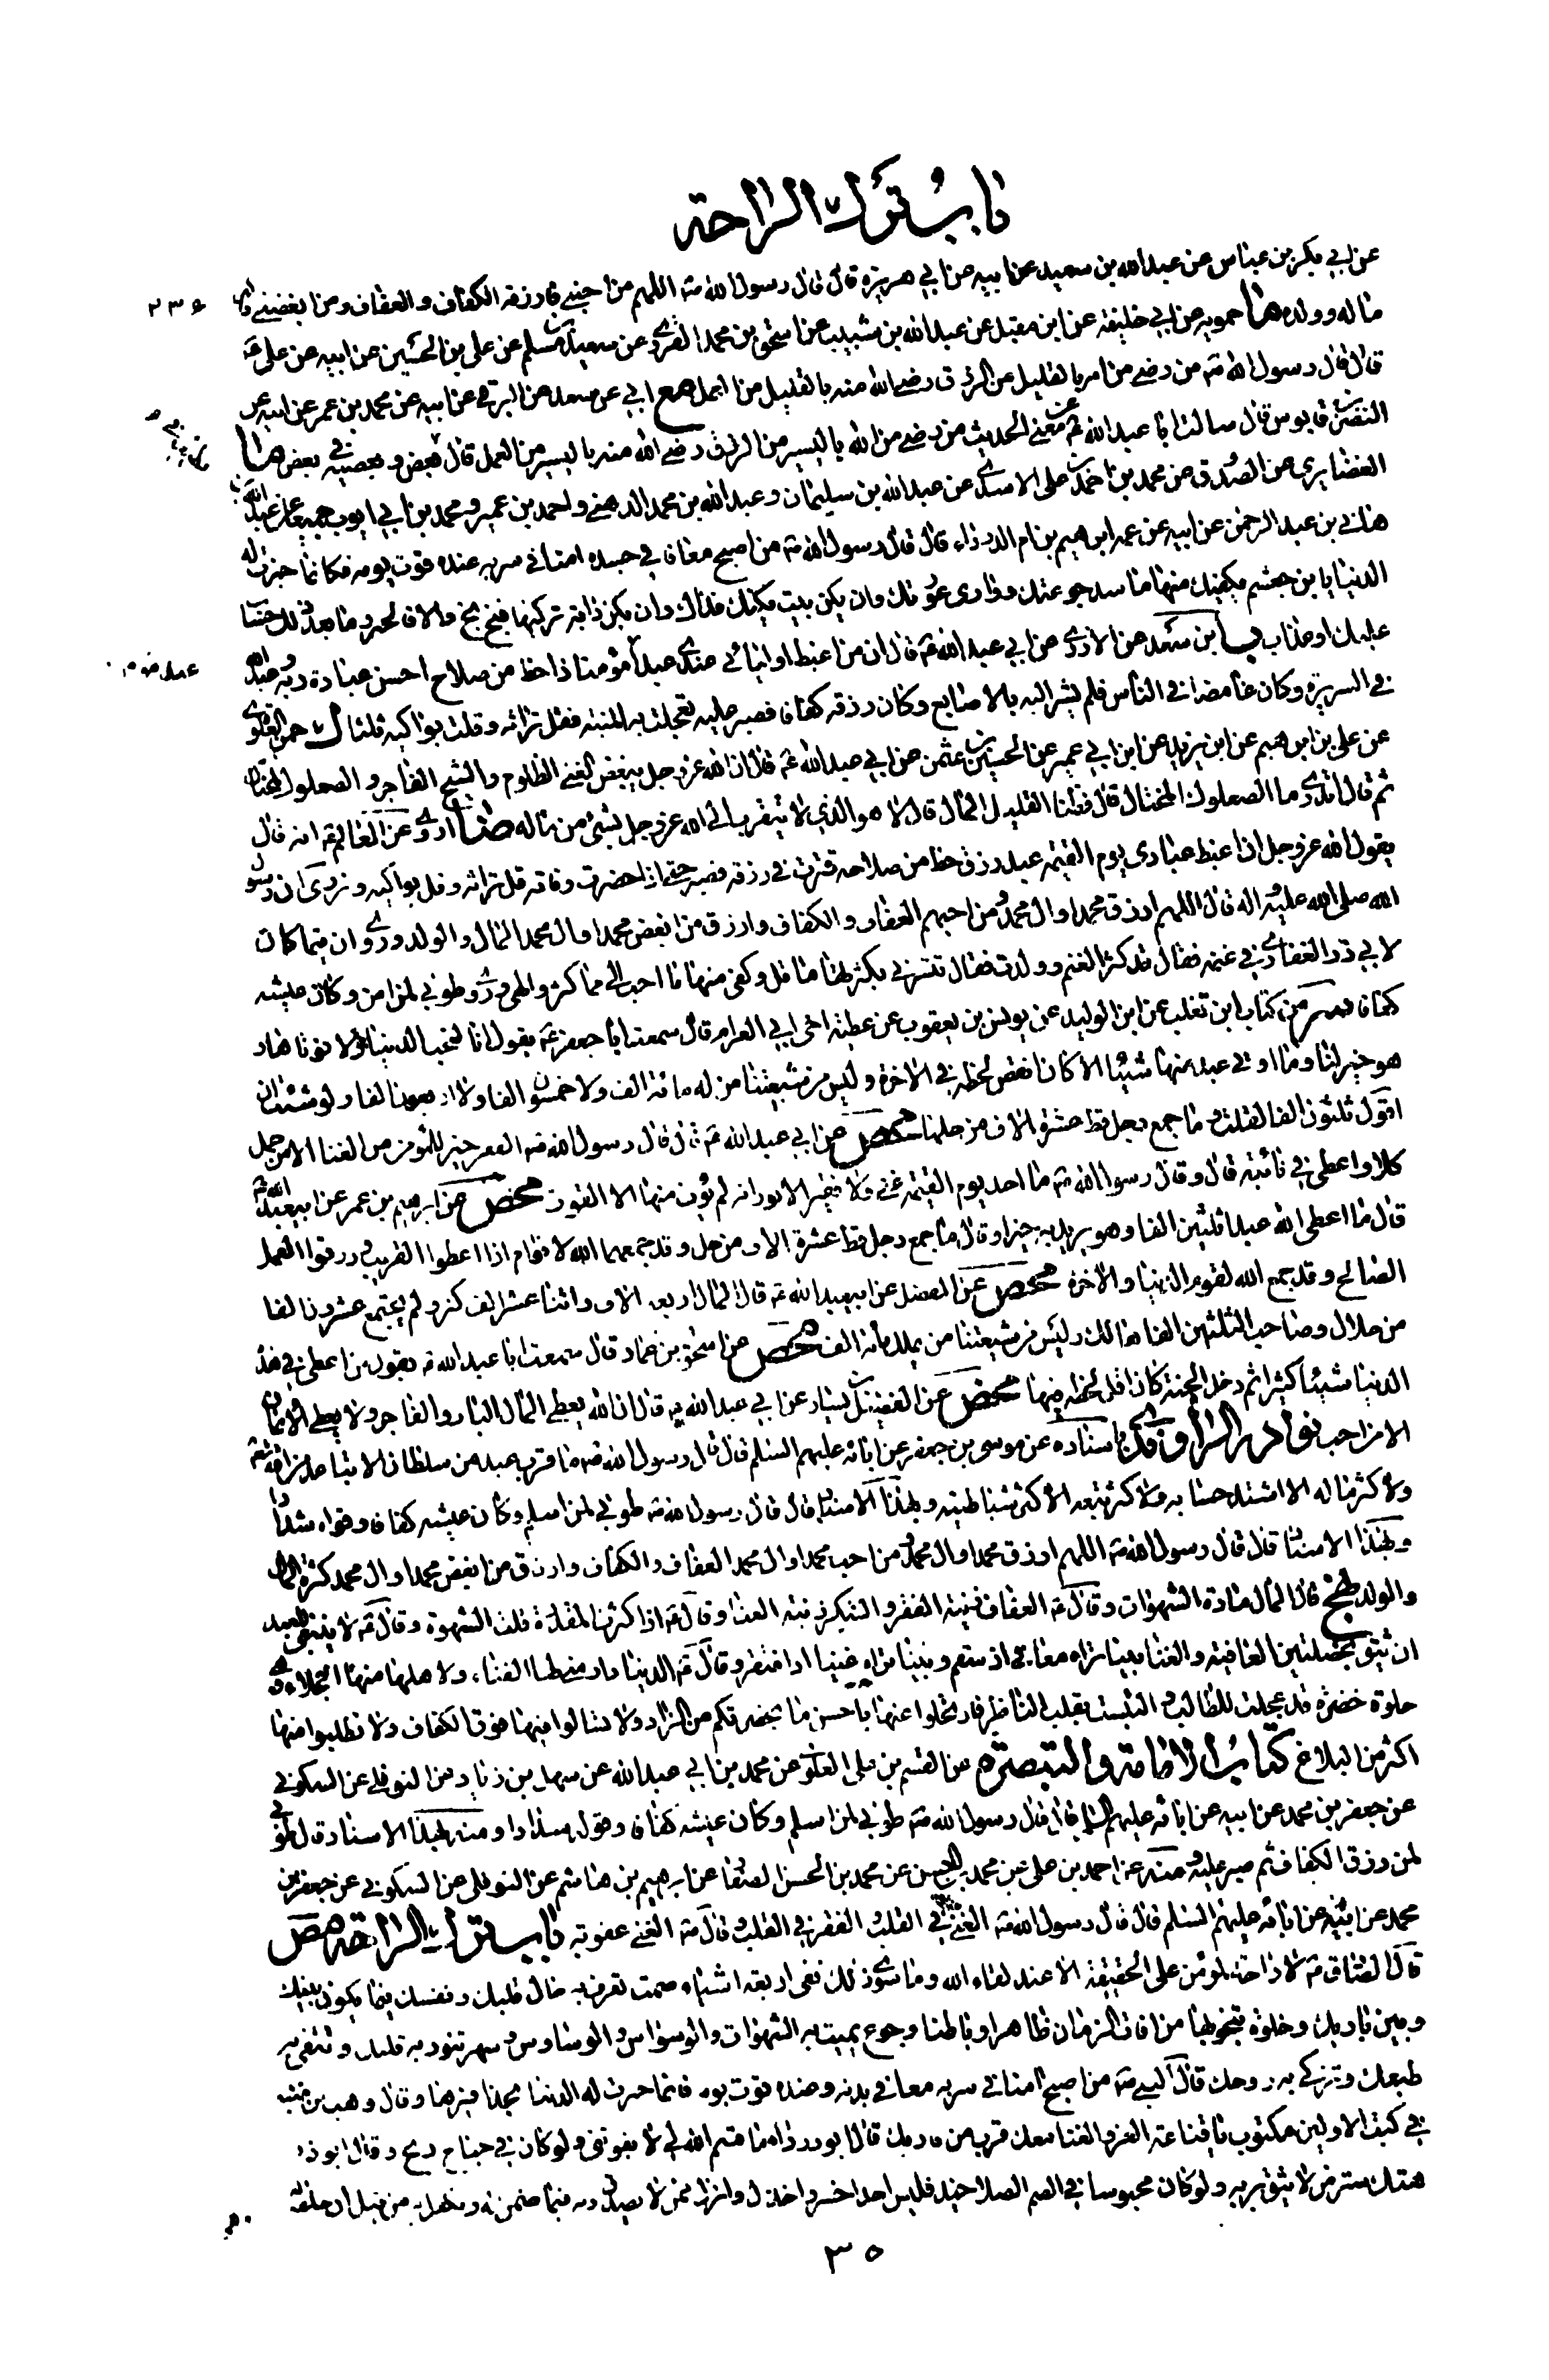 باب ترك الراحة
عن ابي بكر بن عياش عن عبدالله بن سعيد عن ابيه عن ابي هريرة قال قال رسول الله ص اللهم من احبني فارزقه الكفاف والعفاف ومن ابغضني فاكثر
ماله وولده ما حمويه عن ابي خليفة عن ابن مقبل عن عبدالله بن شبيب عن اسحق بن محمد الفروي عن سعيد بن مسلم عن علي بن الحسين عن ابيه عن علي ع
قال قال رسول الله ص من رضي من الله بالقليل من الرزق رضي الله منه بالقليل من العمل مع ابي عن سعد عن البرقي عن ابيه عن محمد بن عمر عن ابيه عن
النضر بن قابوس قال سالت ابا عبدالله ع عن معنى الحديث من رضي من الله باليسير من الرزق رضي الله منه باليسير من العمل قال يطيعه في بعض ويعصيه في بعض ما
الغضايري عن الصدوق عن محمد بن احمد بن علي الاسدي عن عبدالله بن سليمان وعبدالله بن محمد الدهني واحمد بن عمير ومحمد بن ابي ايوب جميعا عن عبدالله بن
هاني بن عبدالرحمن عن ابيه عن عمه ابرهيم بن ام الدرداء قال قال رسول الله ص من اصبح معافى في جسده امنا في سربه عنده قوت يومه فكانما حيزت له
الدنيا يا بن جعشم يكفيك منها ما سد جوعتك ووارى عورتك وان يكن بيت يكنك فذاك وان يكن دابة تركبها فبخ بخ والا فالخبز وما بعد ذلك حساب
عليك او عذاب ب ابن سعد عن الازدي عن ابي عبدالله ع قال ان من اغبط اوليائي عندي عبدا مؤمنا ذا حظ من صلاح احسن عبادة ربه وعبدالله
في السريرة وكان غامضا في الناس فلم يشر اليه بالاصابع وكان رزقه كفافا فصبر عليه تعجلت به المنية فقل تراثه وقلت بواكيه ثلثا ل حمزة العلوي
عن علي بن ابرهيم عن ابن يزيد عن ابن ابي عمير عن الحسين بن عثمن عن ابي عبدالله ع قال ان الله عز وجل يبغض الغني الظلوم والشيخ الفاجر والصعلوك المختال
ثم قال اتدري ما الصعلوك المختال قال فقلنا القليل المال قال لا هو الذي لا يتقرب الى الله عز وجل بشئ من ماله ضا اروي عن العالم ع انه قال
يقول الله عز وجل ان اغبط عبادي يوم القيمة عبد رزق حظا من صلاحه قترت في رزقه فصبر حتى اذا حضرت وفاته قل تراثه وقل بواكيه ونروى ان رسول
الله صلى الله عليه واله قال اللهم ارزق محمدا وال محمد ومن احبهم العفاف والكفاف وارزق من ابغض محمدا وال محمد المال والولد وروي ان قيما كان
لابي ذر الغفاري في غنمه فقال قد كثر الغنم وولدت فقال تبشرني بكثرتها ما قل وكفى منها احب الي مما كثر والهى وروي طوبى لمن امن وكان عيشه
كفافا سر من كتاب ابن تغلب عن ابن الوليد عن يونس بن يعقوب عن عطية اخي ابي العرام قال سمعت ابا جعفر ع يقول انا لنحب الدنيا ولا نؤتاها
هو خير لنا وما اوتي عبد منها شيئا الا كان انقص لحظه في الاخرة وليس من شيعتنا من له مائة الف ولا خمسون الفا ولا اربعون الفا ولو شئت ان
اقول ثلثون الفا لقلت وما جمع رجل قط عشرة الاف من حلها محص عن ابي عبدالله ع قال قال رسول الله ص الفقر خير للمؤمن من الغنا الا من حمل
كلا واعطى في نائبة قال وقال رسول الله ص ما احد يوم القيمة غني ولا فقير الا يود انه لم يؤت منها الا القوت محص عن ابرهيم بن عمر عن ابي عبدالله ع
قال ما اعطى الله عبدا ثلثين الفا وهو يريد به خيرا وقال ما جمع رجل قط عشرة الاف من حل وقد جمعهما الله لاقوام اذا اعطوا القريب ورزقوا العمل
الصالح وقد جمع الله لقوم الدنيا والاخرة محص عن المفضل عن ابي عبدالله ع قال المال اربعة الاف واثنا عشر الف كنز ولم يجتمع عشرون الفا
من حلال وصاحب الثلثين الفا هالك وليس من شيعتنا من يملك مائة الف محص عن اسحق بن عمار قال سمعت ابا عبدالله ع يقول من اعطي في هذه
الدنيا شيئا كثيرا ثم دخل الجنة كان اقل لحظه فيها محص عن الفضيل بن يسار عن ابي عبدالله ع قال ان الله يعطي المال البار والفاجر ولا يعطي الايمان
الا من احب نوادر الراوندي باسناده عن موسى بن جعفر عن ابائه عليهم السلام قال قال رسول الله ص ما قرب عبد من سلطان الا تباعد من الله تعالى
ولا كثر ماله الا اشتد حسابه ولا كثر تبعه الا كثر شياطينه وبهذا الاسناد قال قال رسول الله ص طوبى لمن اسلم وكان عيشه كفافا وقواه شدادا
وبهذا الاسناد قال قال رسول الله ص اللهم ارزق محمدا وال محمد ومن احب محمدا وال محمد العفاف والكفاف وارزق من ابغض محمدا وال محمد كثرة المال
والولد نهج قال المال مادة الشهوات وقال ع العفاف زينة الفقر والشكر زينة الغنا وقال ع اذا كثرت المقدرة قلت الشهوة وقال ع لا ينبغي للعبد
ان يثق بخصلتين العافية والغنا بينا تراه معافى اذ سقم وبينا تراه غنيا اذ افتقر وقال ع الدنيا دار مني لها الفناء ولاهلها منها الجلاء وهي
حلوة خضرة قد عجلت للطالب والتبست بقلب الناظر فارتحلوا عنها باحسن ما بحضرتكم من الزاد ولا تسالوا فيها فوق الكفاف ولا تطلبوا منها
اكثر من البلاغ كتاب الامامة والتبصرة عن القسم بن علي العلوي عن محمد بن ابي عبدالله عن سهل بن زياد عن النوفلي عن السكوني
عن جعفر بن محمد عن ابيه عن ابائه عليهم السلام قال قال رسول الله ص طوبى لمن اسلم وكان عيشه كفافا وقوله سدادا ومنه بهذا الاسناد قال طوبى
لمن رزق الكفاف ثم صبر عليه ومنه عن احمد بن علي عن محمد بن الحسن عن محمد بن الحسن الصفار عن ابرهيم بن هاشم عن النوفلي عن السكوني عن جعفر بن
محمد عن ابيه عن ابائه عليهم السلام قال قال رسول الله ص الغنى في القلب والفقر في القلب وقال ص الغنى عقوبة باب ترك الراحة مص
قال الصادق ع لا راحة لمؤمن على الحقيقة الا عند لقاء الله وما سوى ذلك ففي اربعة اشياء صمت تعرف به حال قلبك ونفسك فيما يكون بينك
وبين باريك وخلوة تنجو بها من افات الزمان ظاهرا وباطنا وجوع يميت به الشهوات والوسواس والوساوس وسهر تنور به قلبك وتنقي به
طبعك وتزكي به روحك قال النبي ص من اصبح امنا في سربه معافى في بدنه وعنده قوت يومه فانما حيزت له الدنيا بحذافيرها وقال وهب بن منبه
في كتب الاولين مكتوب يا قناعة العز والغنا معك قرب من فاز بك قال ابو درداء ما قسم الله لي لا يفوتني ولو كان في جناح ريح وقال ابو ذر
هتك ستر من لا يثق بربه ولو كان محبوسا في الصم الصلاخيد فليس احد اخسر واخذل وانزل ممن لا يصدق ربه فيما ضمن له وتكفل به من قبل ان خلقه
٣٥